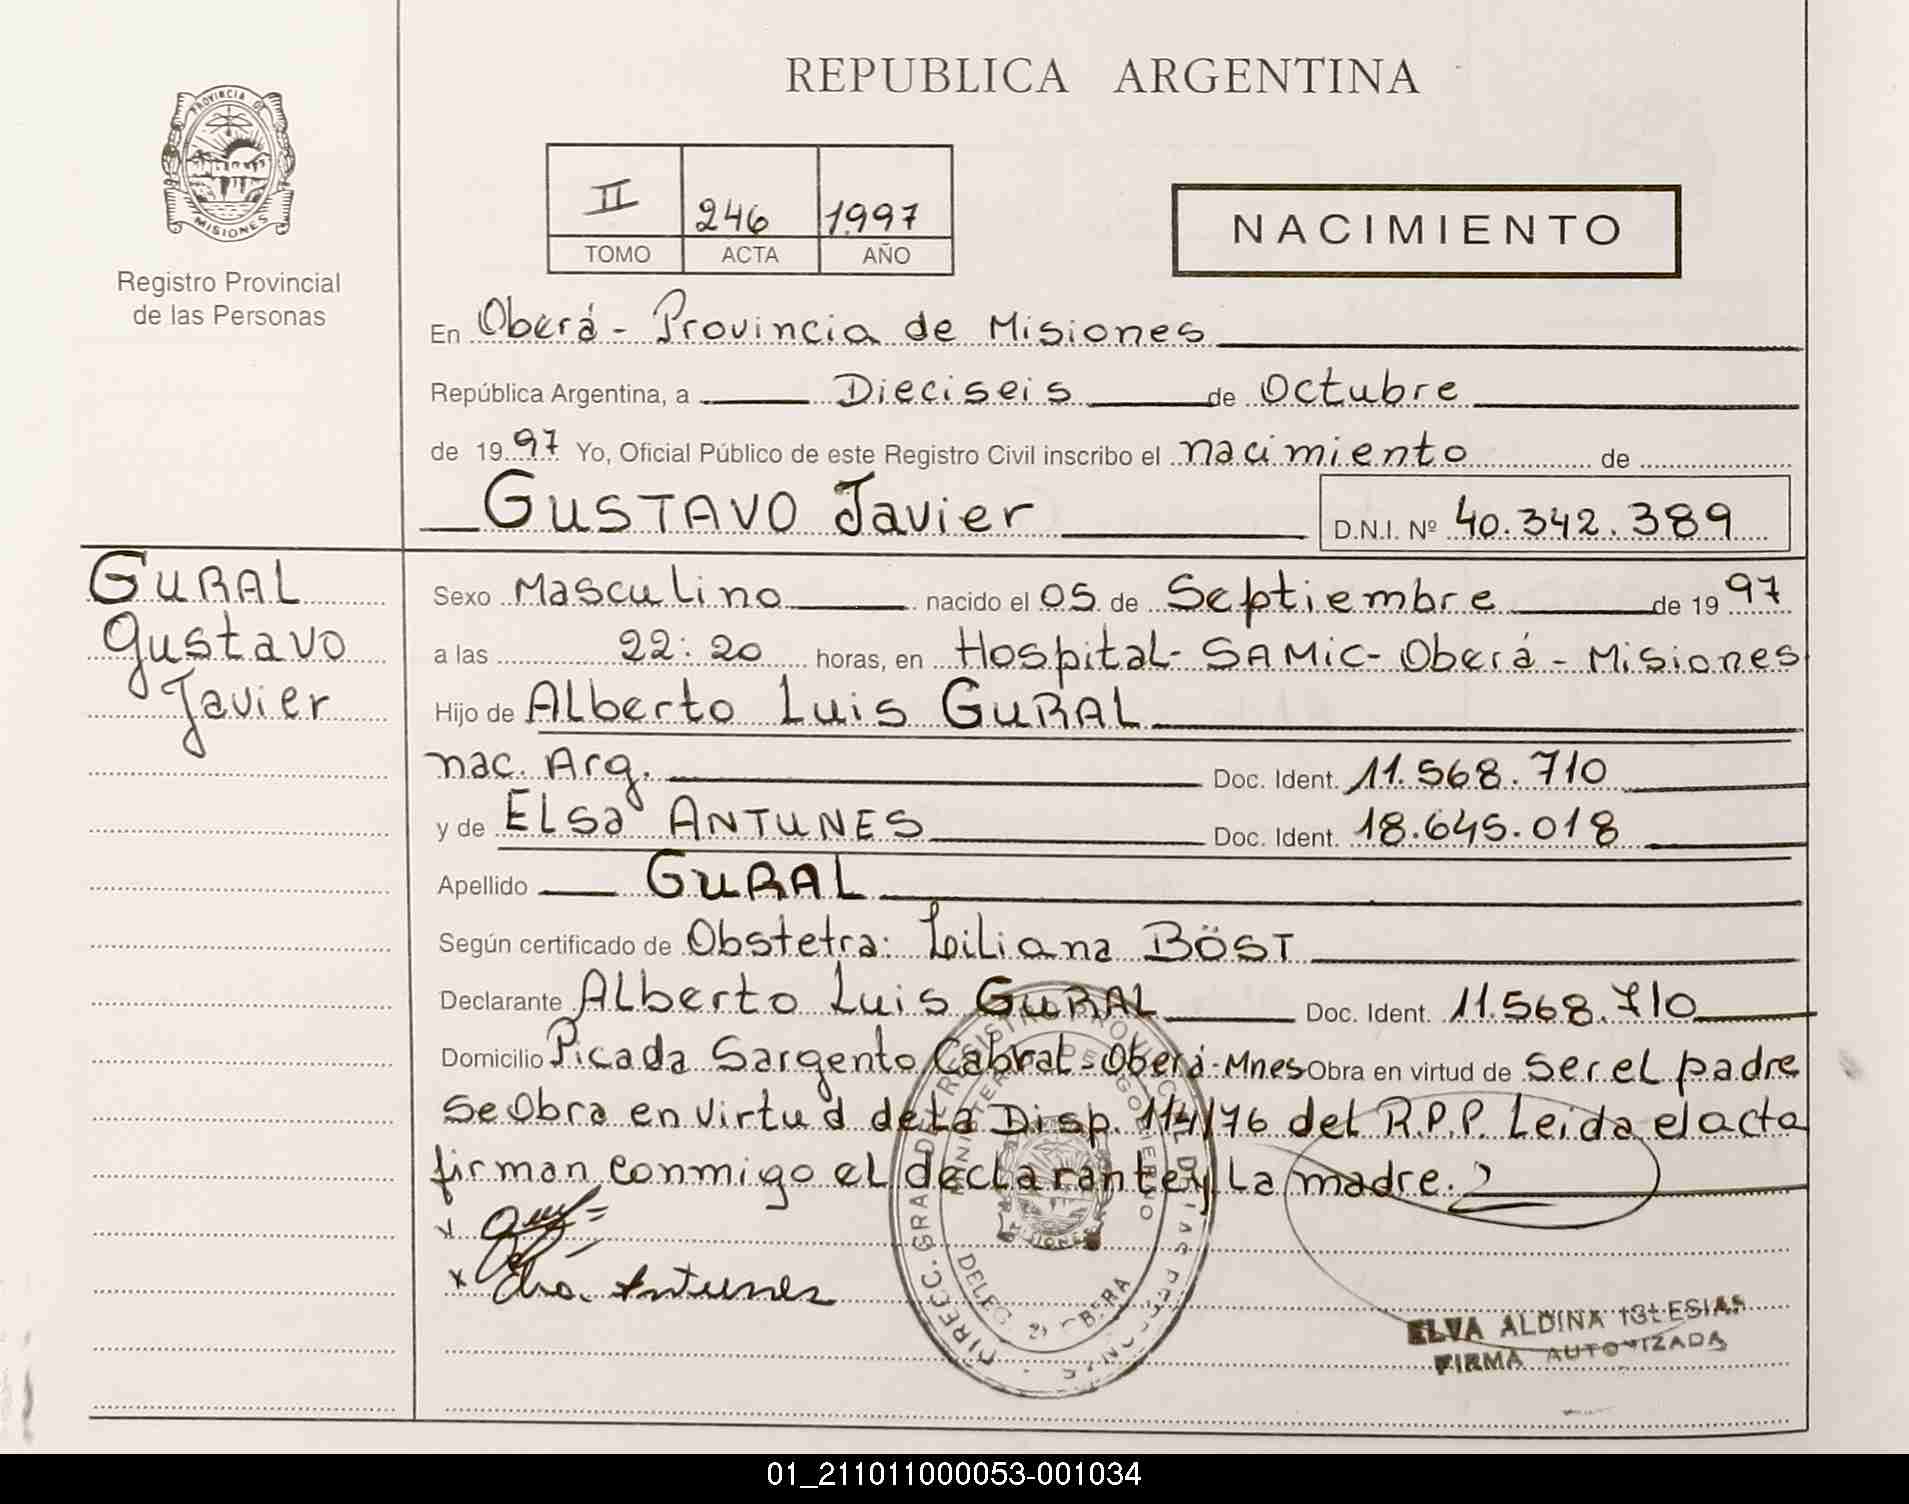 REPUBLICA ARGENTINA
PROVINCIA DE
MISIONES
Registro Provincial
de las Personas
II 246 1997
TOMO ACTA AÑO
NACIMIENTO
En Oberá - Provincia de Misiones
República Argentina, a Dieciseis de Octubre
de 1997 Yo, Oficial Público de este Registro Civil inscribo el nacimiento de
GUSTAVO Javier D.N.I. Nº 40.342.389
GURAL
Gustavo
Javier
Sexo Masculino nacido el 05 de Septiembre de 1997
a las 22:20 horas, en Hospital- SAMIC- Oberá - Misiones
Hijo de Alberto Luis GURAL
nac. Arg. Doc. Ident. 11.568.710
y de ELSA ANTUNES Doc. Ident. 18.645.018
Apellido GURAL
Según certificado de Obstetra: Liliana BÖST
Declarante Alberto Luis GURAL Doc. Ident. 11.568.710
Domicilio Picada Sargento Cabral - Oberá - Mnes Obra en virtud de ser el padre
Se Obra en virtud de la Disp. 114/76 del R.P.P. Leida el acta
firman conmigo el declarante y la madre.
x
x Antunes
ELVA ALDINA IGLESIAS
FIRMA AUTORIZADA
01_211011000053-001034